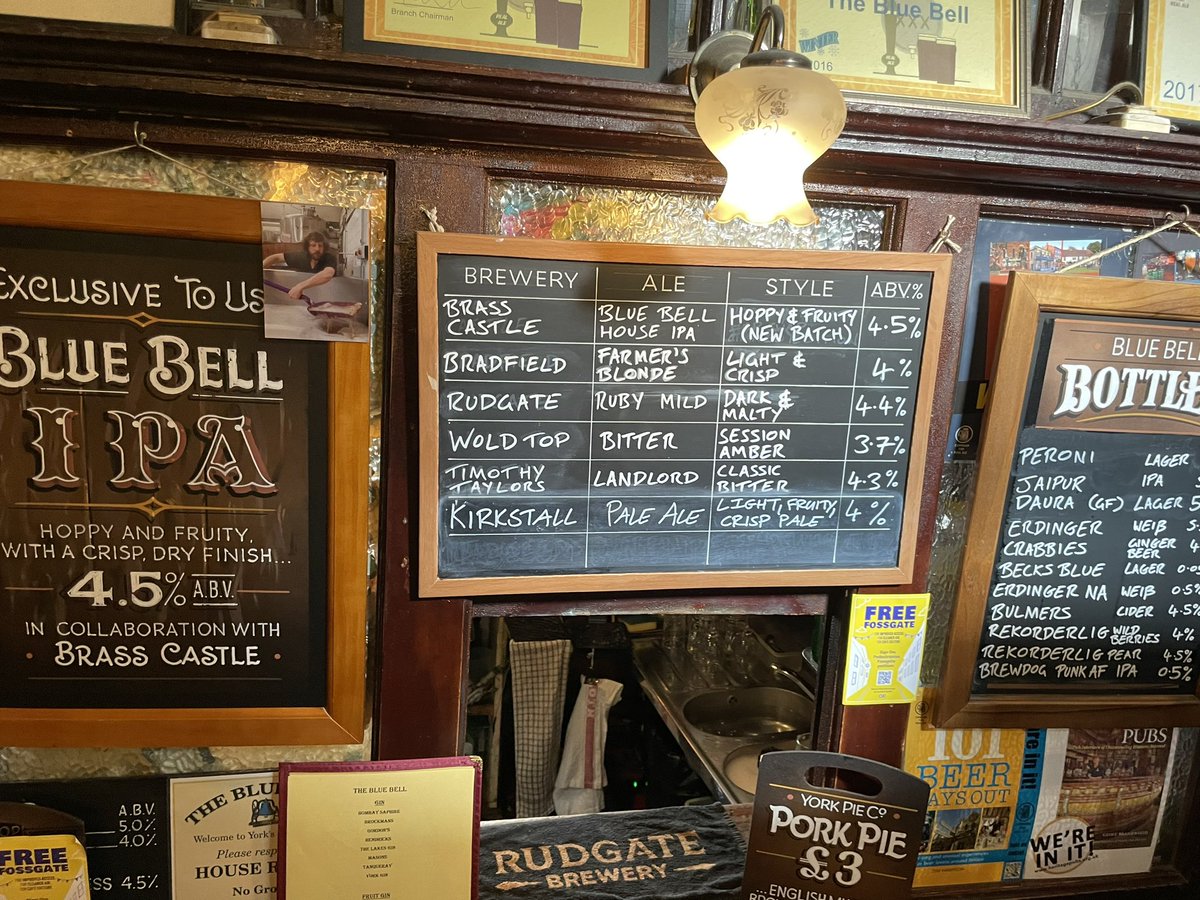 Branch Chairman
The Blue Bell
WINTER
2016
2017
EXCLUSIVE TO US
BLUE BELL
IPA
HOPPY AND FRUITY,
WITH A CRISP, DRY FINISH...
4.5% A.B.V.
IN COLLABORATION WITH
BRASS CASTLE
BREWERY ALE STYLE ABV.%
BRASS CASTLE BLUE BELL HOUSE IPA HOPPY & FRUITY (NEW BATCH) 4.5%
BRADFIELD FARMER'S BLONDE LIGHT & CRISP 4%
RUDGATE RUBY MILD DARK & MALTY 4.4%
WOLD TOP BITTER SESSION AMBER 3.7%
TIMOTHY TAYLORS LANDLORD CLASSIC BITTER 4.3%
KIRKSTALL PALE ALE LIGHT, FRUITY, CRISP PALE 4%
BLUE BELL
BOTTLE
PERONI LAGER
JAIPUR IPA
DAURA (GF) LAGER
ERDINGER WEIß
CRABBIES GINGER BEER
BECKS BLUE LAGER
ERDINGER NA WEIß 0.5%
BULMERS CIDER 4.5%
REKORDERLIG WILD BERRIES 4%
REKORDERLIG PEAR 4.5%
BREWDOG PUNK AF IPA 0.5%
FREE
FOSSGATE
A.B.V.
5.0%
4.0%
4.5%
FREE
FOSSGATE
THE BLUE
Welcome to York's
Please resp
HOUSE R
No Gro
THE BLUE BELL
GIN
BOMBAY SAPHIRE
BROCKMANS
GORDON'S
HENDRICKS
THE LAKES GIN
MASONS
TANQUERAY
YORK GIN
FRUIT GIN
RUDGATE
BREWERY
YORK PIE CO
PORK PIE
£3
...ENGLISH
101
BEER
DAYS OUT
PUBS
WE'RE
IN IT!